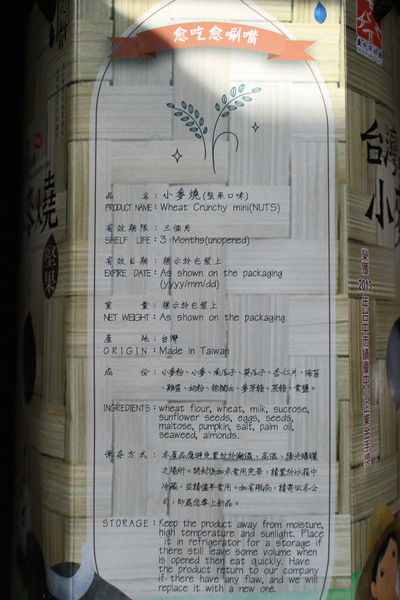 愈吃愈唰嘴
品 名：小麥燒(堅果口味)
PRODUCT NAME: Wheat Crunchy mini(NUTS)
有效期限：三個月
SHELF LIFE: 3 Months(unopened)
有效日期：標示於包裝上
EXPIRE DATE: As shown on the packaging
(yyyy/mm/dd)
重 量：標示於包裝上
NET WEIGHT: As shown on the packaging
產 地：台灣
ORIGIN: Made in Taiwan
成 份：小麥粉、小麥、南瓜子、葵瓜子、杏仁片、海苔
、雞蛋、奶粉、棕櫚油、麥芽糖、蔗糖、食鹽。
INGREDIENTS: wheat flour, wheat, milk, sucrose,
sunflower seeds, eggs, seeds,
maltose, pumpkin, salt, palm oil,
seaweed, almonds.
保存方式：本產品應避免置放於潮濕、高溫、陽光曝曬
之場所。開封後如未食用完畢，請置於冰箱中
冷藏，並請儘早食用。如有瑕疵，請寄回本公
司，即為您奉上新品。
STORAGE: Keep the product away from moisture,
high temperature and sunlight. Place
it in refrigerator for a storage if
there still leave some volume when
is opened then eat quickly. Have
the product return to our company
if there have any flaw, and we will
replace it with a new one.
燒
堅果
台灣
小